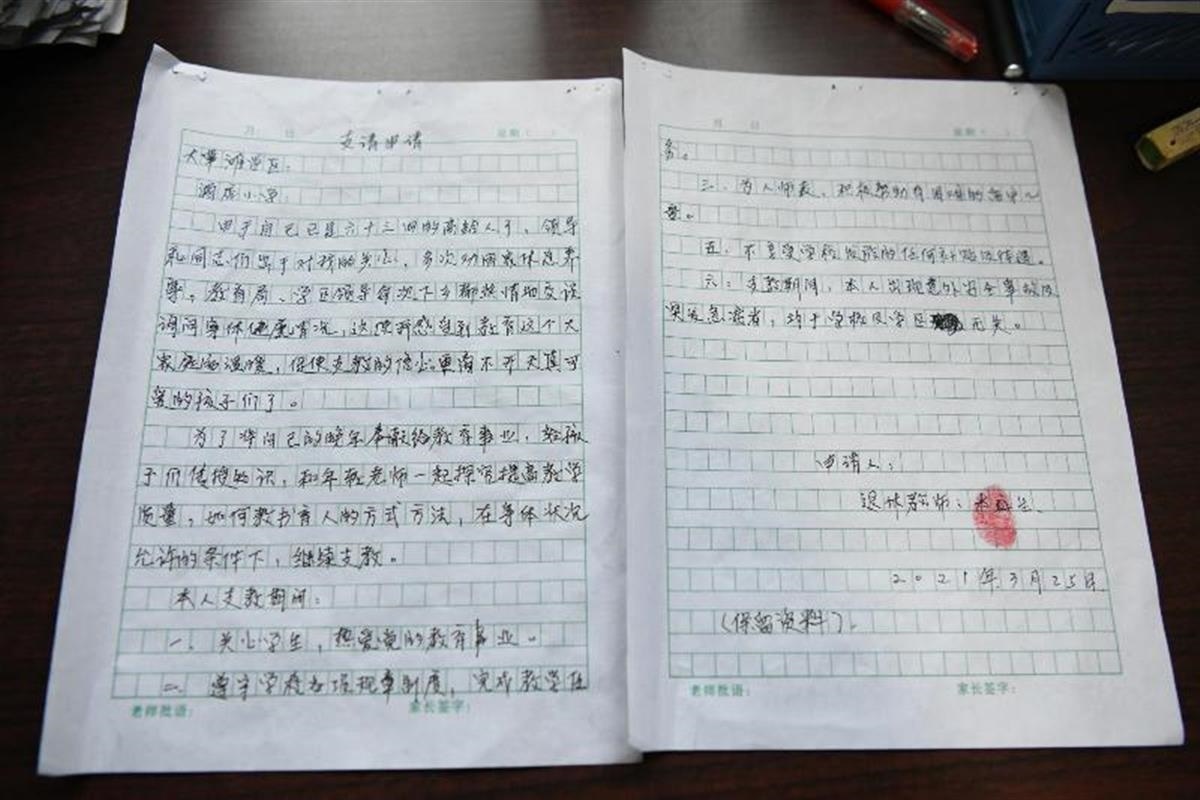 月 日 星期( )
支请申请
大草滩学区:
酒店小学:
由于自己已是六十三四的高龄人了,领导
和同志们出于对我的关心,多次劝回家休息养
导。教育局、学区领导每次下乡都热情地交谈
询问身体健康情况,这使我感受到教育这个大
家庭的温暖,促使支教的信心更离不开天真可
爱的孩子们了。
为了将自己的晚年奉献给教育事业,给孩
子们传授知识,和年轻老师一起探究提高教学
质量,如何教书育人的方式方法,在身体状况
允许的条件下,继续支教。
本人支教期间:
一、关心学生,热爱党的教育事业。
二、遵守学校各项规章制度,完成教学任
老师批语: 家长签字:
月 日 星期( )
务。
三、为人师表,积极帮助有困难的
五、不享受学校发放的任何补贴及待遇。
六、支教期间,本人出现意外安全事故及
突发急病者,均于学校及学区无关。
申请人:
退休教师:
2021年3月25日
(保留资料)。
老师批语: 家长签字: